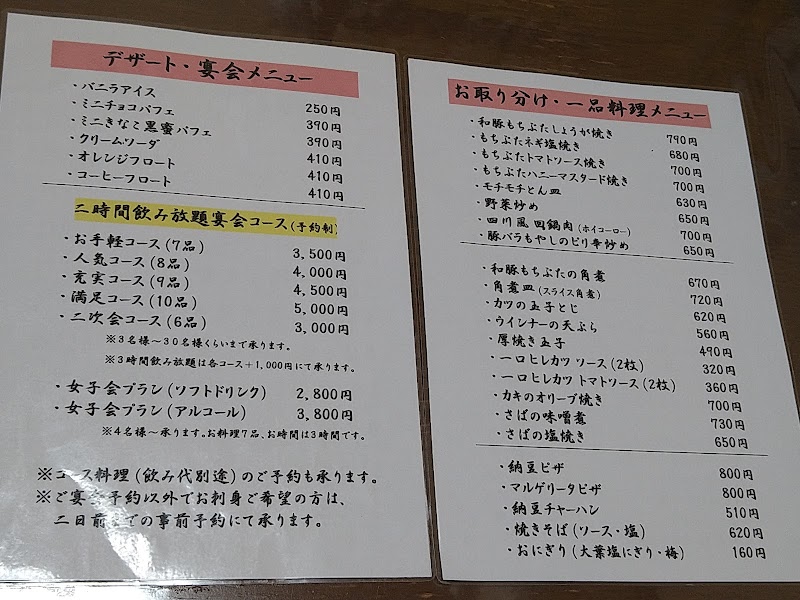 デザート・宴会メニュー
・バニラアイス 250円
・ミニチョコパフェ 390円
・ミニきなこ黒蜜パフェ 390円
・クリームソーダ 410円
・オレンジフロート 410円
・コーヒーフロート 410円
二時間飲み放題宴会コース(予約制)
・お手軽コース(7品) 3,500円
・人気コース(8品) 4,000円
・充実コース(9品) 4,500円
・満足コース(10品) 5,000円
・二次会コース(6品) 3,000円
※3名様～30名様くらいまで承ります。
※3時間飲み放題は各コース+1,000円にて承ります。
・女子会プラン(ソフトドリンク) 2,800円
・女子会プラン(アルコール) 3,800円
※4名様～承ります。お料理7品、お時間は3時間です。
※コース料理(飲み代別途)のご予約も承ります。
※ご宴会予約以外でお刺身ご希望の方は、
二日前までの事前予約にて承ります。
お取り分け・一品料理メニュー
・和豚もちぶたしょうが焼き 790円
・もちぶたネギ塩焼き 680円
・もちぶたトマトソース焼き 700円
・もちぶたハニーマスタード焼き 700円
・モチモチとん皿 630円
・野菜炒め 650円
・四川風回鍋肉(ホイコーロー) 700円
・豚バラもやしのピリ辛炒め 650円
・和豚もちぶたの角煮 670円
・角煮皿(スライス角煮) 720円
・カツの玉子とじ 620円
・ウインナーの天ぷら 560円
・厚焼き玉子 490円
・一口ヒレカツ ソース(2枚) 320円
・一口ヒレカツ トマトソース(2枚) 360円
・カキのオリーブ焼き 700円
・さばの味噌煮 730円
・さばの塩焼き 650円
・納豆ピザ 800円
・マルゲリータピザ 800円
・納豆チャーハン 510円
・焼きそば(ソース・塩) 620円
・おにぎり(大葉塩にぎり・梅) 160円